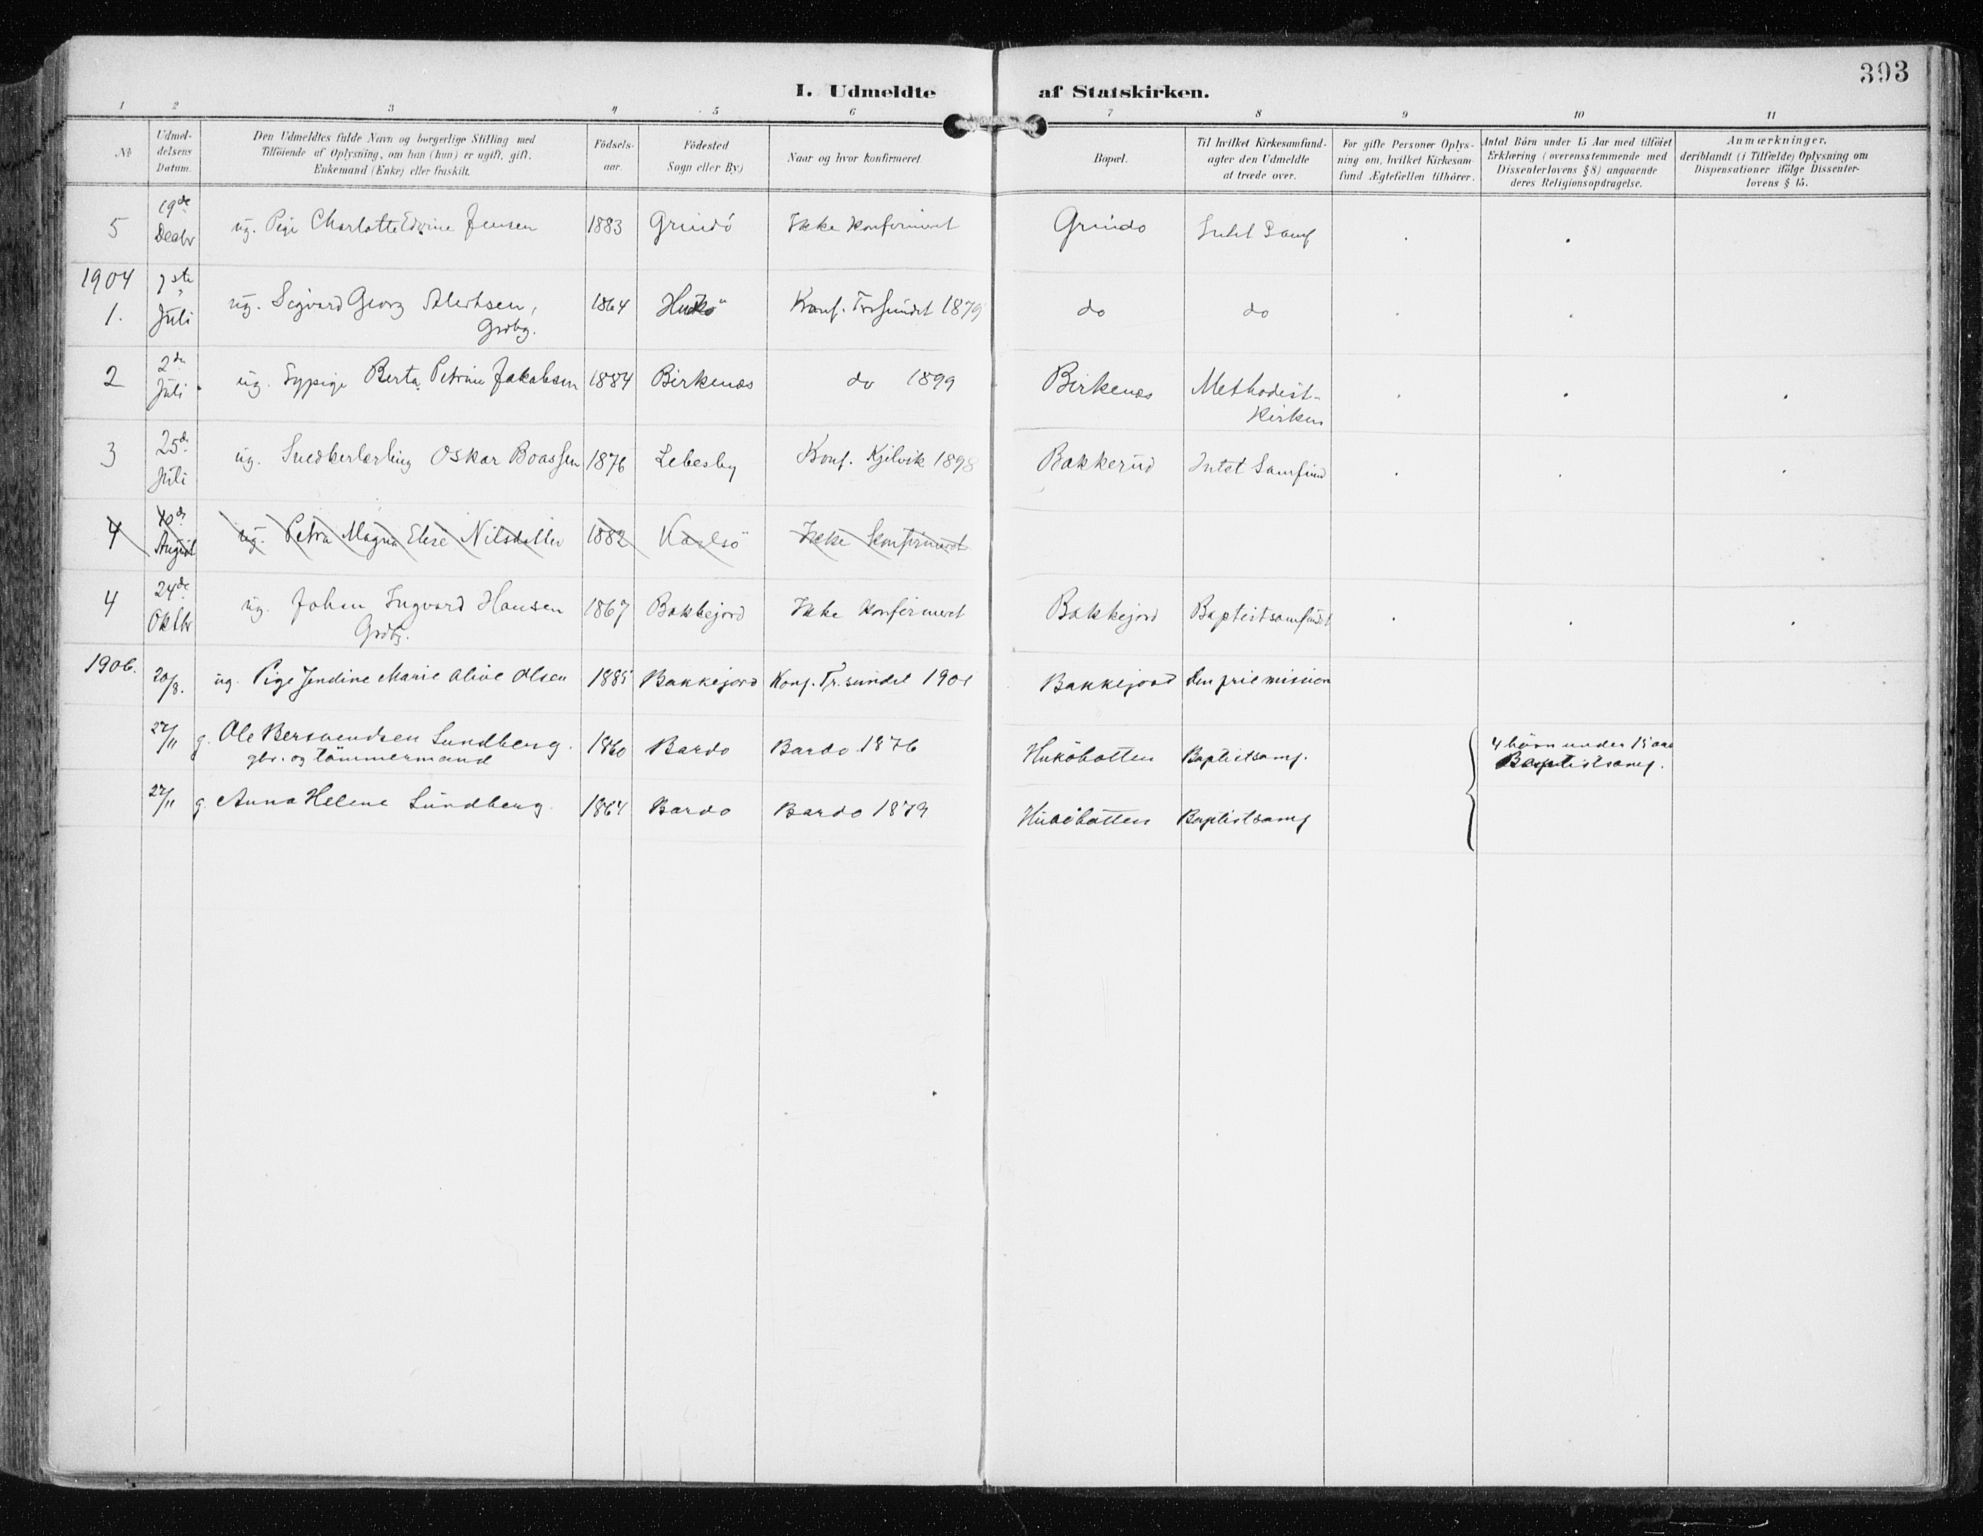 393
I. Udmeldte af Statskirken.
1 2 3 4 5 6 7 8 9 10 11
№
Udmel-
delsens
Datum.
Den Udmeldtes fulde Navn og borgerlige Stilling med
Tilföiende af Oplysning, om han (hun) er ugift, gift,
Enkemand (Enke) eller fraskilt.
Födsels-
aar.
Födested
Sogn eller By.)
Naar og hvor konfirmeret
Bopæl.
Til hvilket Kirkesamfund
agter den Udmeldte
at træde over.
For gifte Personer Oplys-
ning om, hvilket Kirkesam-
fund Ægtefællen tilhörer.
Antal Börn under 15 Aar med tilföiet
Erklæring (overensstemmende med
Dissenterlovens § 8) angaaende
deres Religionsopdragelse.
Anmærkninger,
deriblandt (i Tilfælde) Oplysning om
Dispensationer ifölge Dissenter-
lovens § 15.
5 19de Decbr ug. Pige Charlotte Edvine Jensen 1883 Grindö Ikke konfirmeret Grindö Intet Samf
1904
1. 1ste Juli ug. Sigvard Georg 1864 Konf. Tr.sundet 1879 do do
Grdbg.
2 2de Juli ug. Sypige Berta Petrine Jakobsen 1884 Birkenæs do 1899 Birkenæs Methodist-
kirken
3 25de Juli ug. Snedkerlærling Oskar Boassen 1876 Lebesby Konf. Kjelvik 1898 Bakkerud Intet Samfund
4 10de August ug. Petra Magna Elise Nilsdatter 1882 Karlsö Ikke konfirmeret
4 24de Oktbr ug. Johan Ingvard Hansen 1867 Bakkejord Ikke konfirmeret Bakkejord Baptistsamfundet
Grdbg.
1906. 20/8. ug. Pige Jendine Marie Oline Olsen 1885 Bakkejord Konf. Tr.sundet 1901 Bakkejord Den frie mission
27/11 g. Ole Bersvendsen Sundberg. 1860 Bardo Bardo 1876 Huköbotten Baptistsamf. 4 börn under 15 aar
gbr. og tömmermand Baptistsamf.
27/11 g. Anna Helene Sundberg. 1864 Bardo Bardo 1879 Huköbotten Baptistsamf